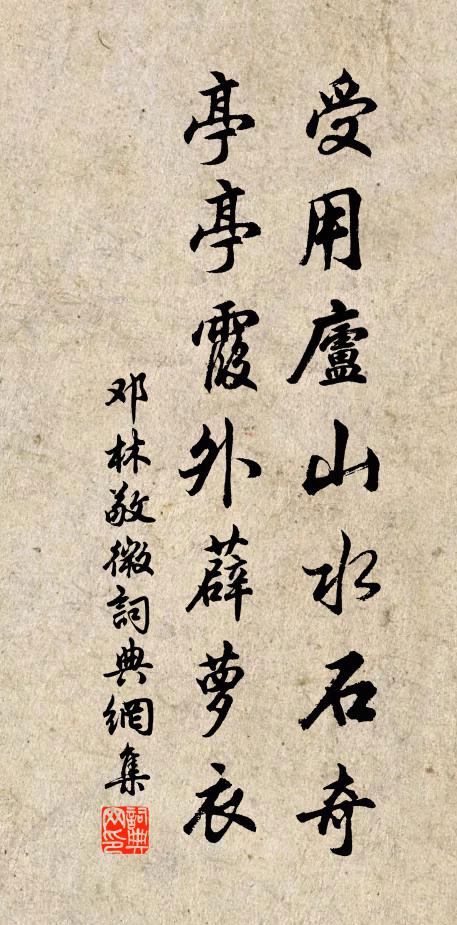 受用廬山水石奇
亭亭霞外薜萝衣
邓林敬微詞典網集
詞典网印